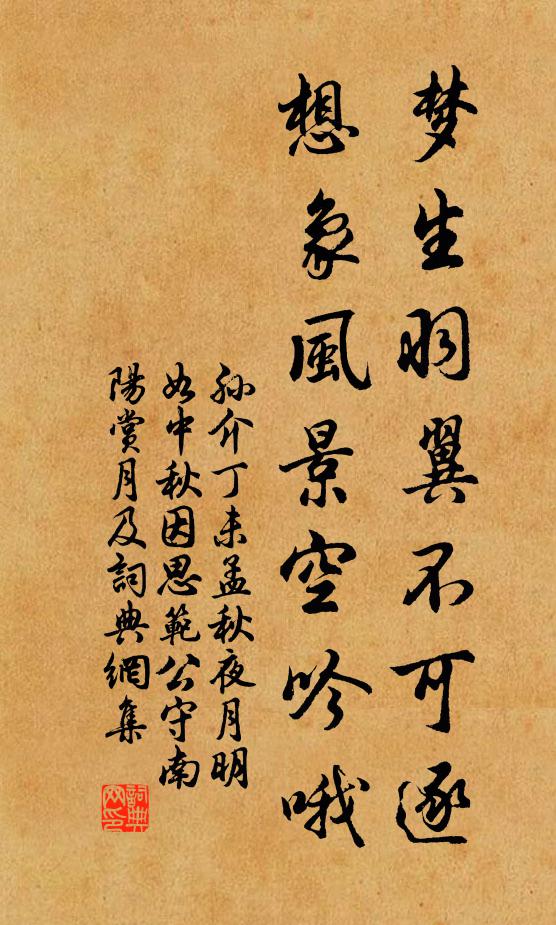 梦生羽翼不可逐
想象風景空吟哦
孙介丁未孟秋夜月明
如中秋因思範公守南
陽賞月及詞典網集
詞典
网印